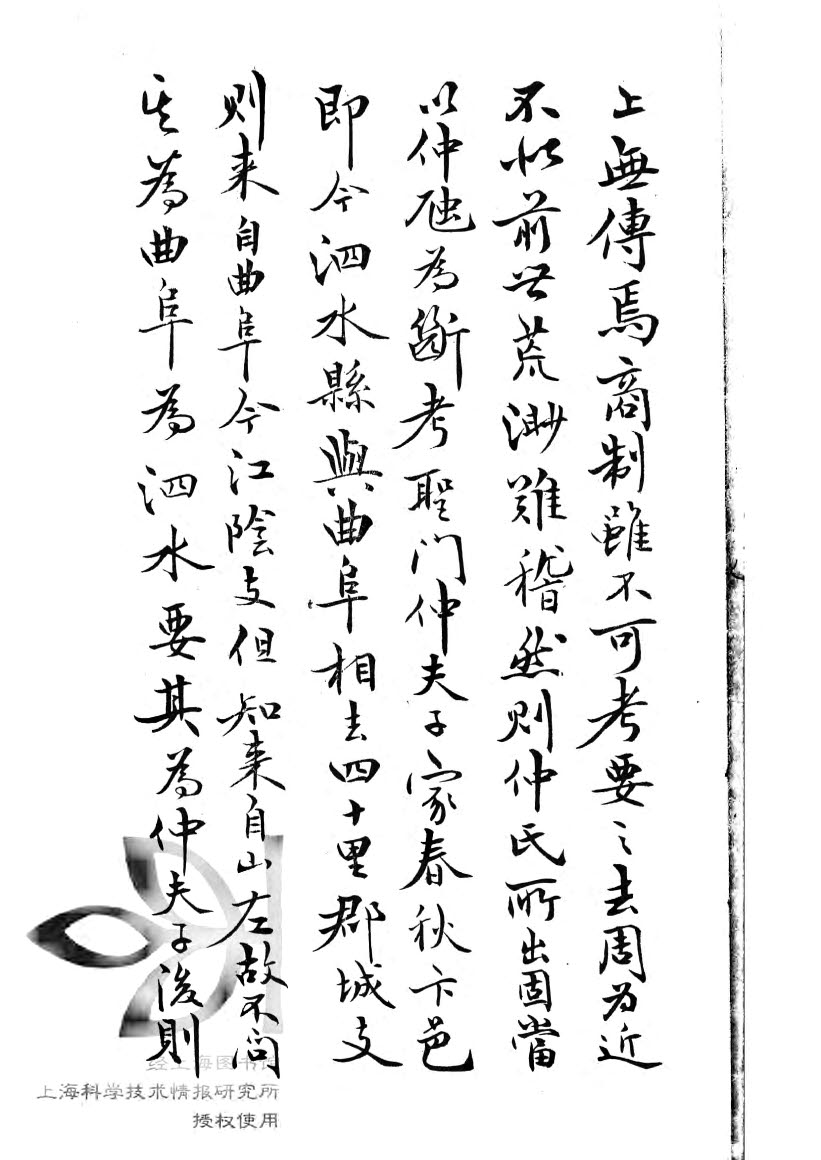 上無傳焉商制雖不可考要之去周為近
不似前世荒渺難稽然則仲氏所出固當
以仲虺為斷考聖门仲夫子家春秋卞邑
即今泗水縣與曲阜相去四十里郡城支
则来自曲阜今江陰支但知来自山左故不问
其為曲阜為泗水要其為仲夫子後則
经上海图书馆
上海科学技术情报研究所
授权使用